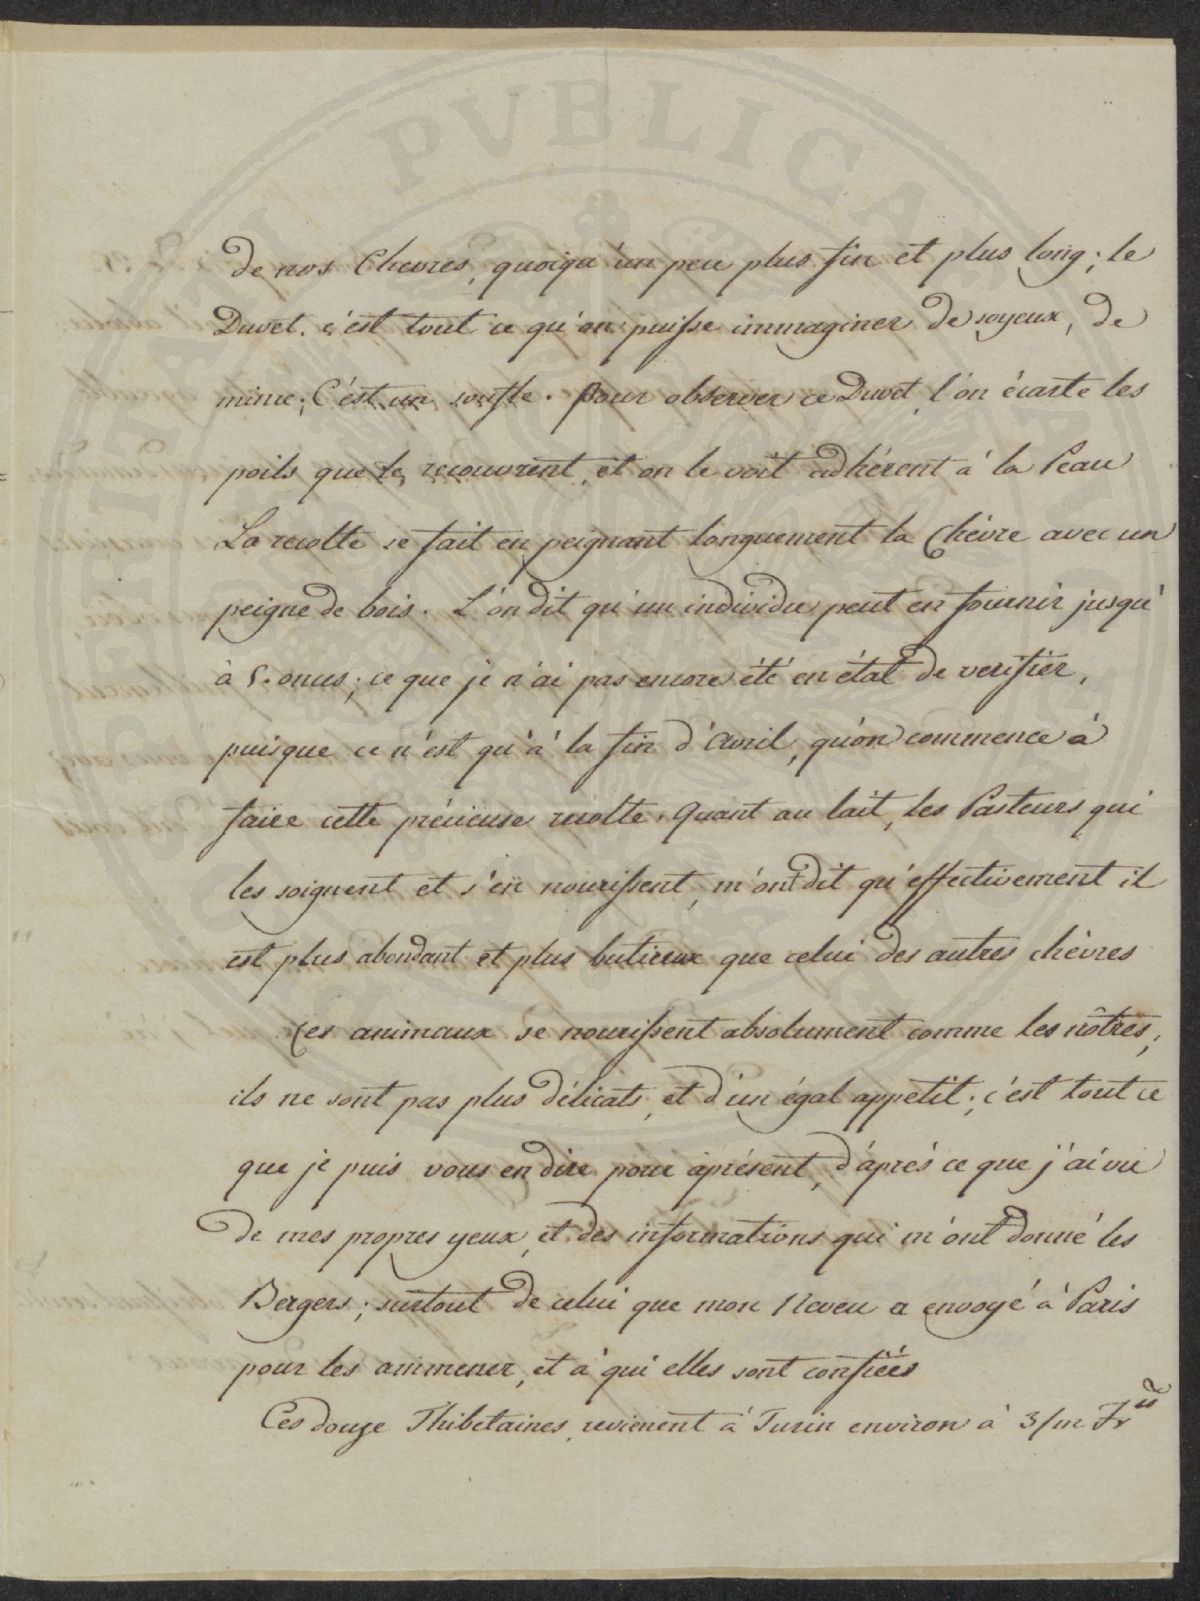 de nos Chevres, quoiqu'un peu plus fin et plus long; le
Duvet. c'est tout ce qu'on puisse immaginer de soyeux, de
mince; C'est un souffle. pour observer ce Duvet, l'on écarte les
poils que le recouvrent, et on le voit adhérent à la Peau
La recolte se fait en peignant longuement la Chévre avec un
peigne de bois. L'on dit qu'un individu peut en fournir jusqu'
à 5. onces; ce que je n'ai pas encore été en état de verifiër,
puisque ce n'est qu'à la fin d'Avril, qu'on commence à
faire cette précieuse recolte. Quant au lait, les Pasteurs qui
les soignent et s'en nourissent, m'ont dit qu'effectivement il
est plus abondant et plus butireux que celui des autres chévres
Ces animaux se nourissent absolument comme les nôtres;
ils ne sont pas plus délicats, et d'un égal appetit; c'est tout ce
que je puis vous en dire pour àprésent, d'aprés ce que j'ai vu
de mes propres yeux, et des informations qui m'ont donné les
Bergers; surtout de celui que mon Neveu a envoyé à Paris
pour les ammener, et à qui elles sont confiées
Ces douze Thibetaines, revienent à Turin environ à 3/m Fr
PVBLICAE